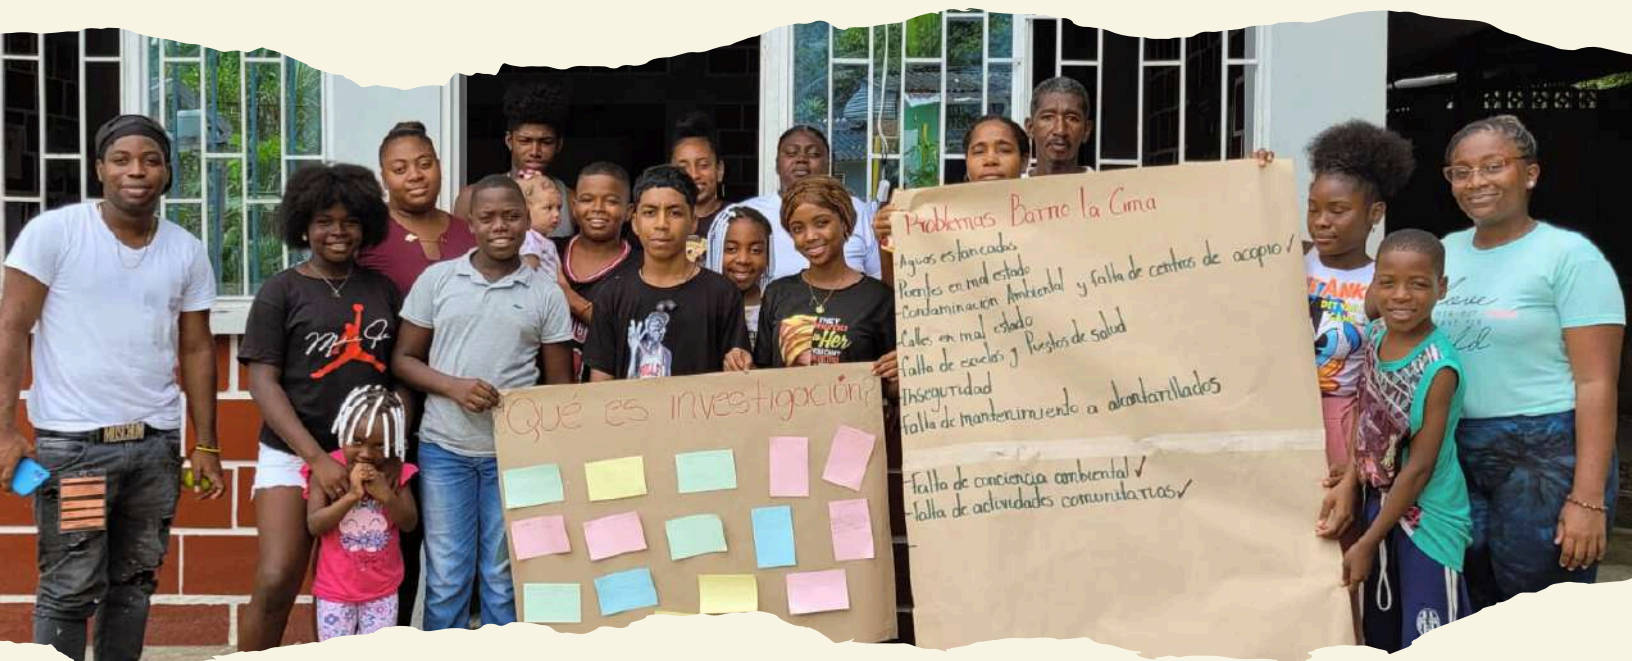 Problemas Barrio la Cima
-Aguas estancadas
Puentes en mal estado
-Contaminación Ambiental y falta de centros de acopio ✓
-Calles en mal estado
falta de escuelas y Puestos de salud
-Inseguridad
falta de mantenimiento a alcantarillados
-Falta de conciencia ambiental ✓
-falta de actividades comunitarias ✓
-
¿Qué es investigación?